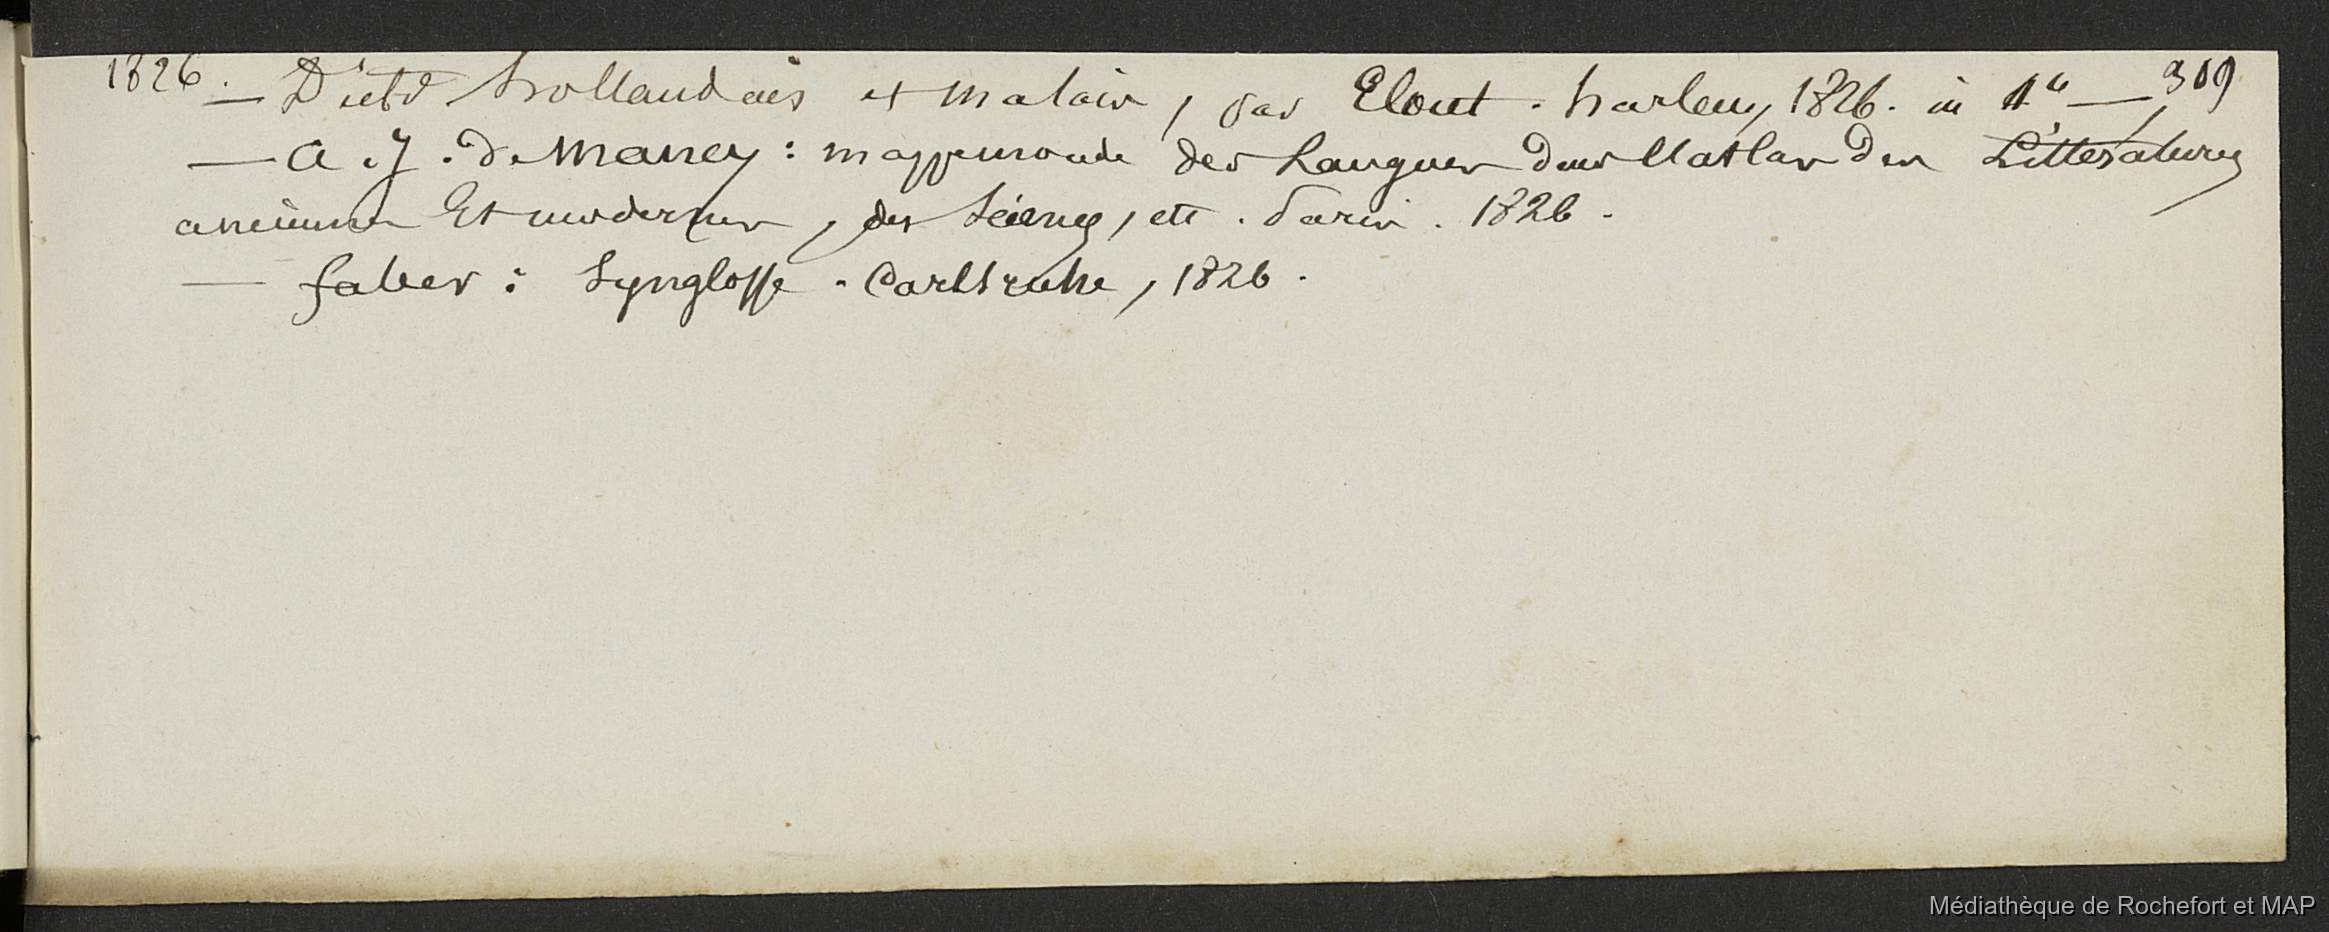 1826. — Dict^e hollandais et malais, par Elout. harlem, 1826. in 4° —, 309
— A. J. de Mancy : mappemonde des Langues dans l'atlas des Littératures
anciennes Et modernes, des Sciences, etc. Paris. 1826.
— faber : Synglosse. Carlsruhe, 1826.
Médiathèque de Rochefort et MAP